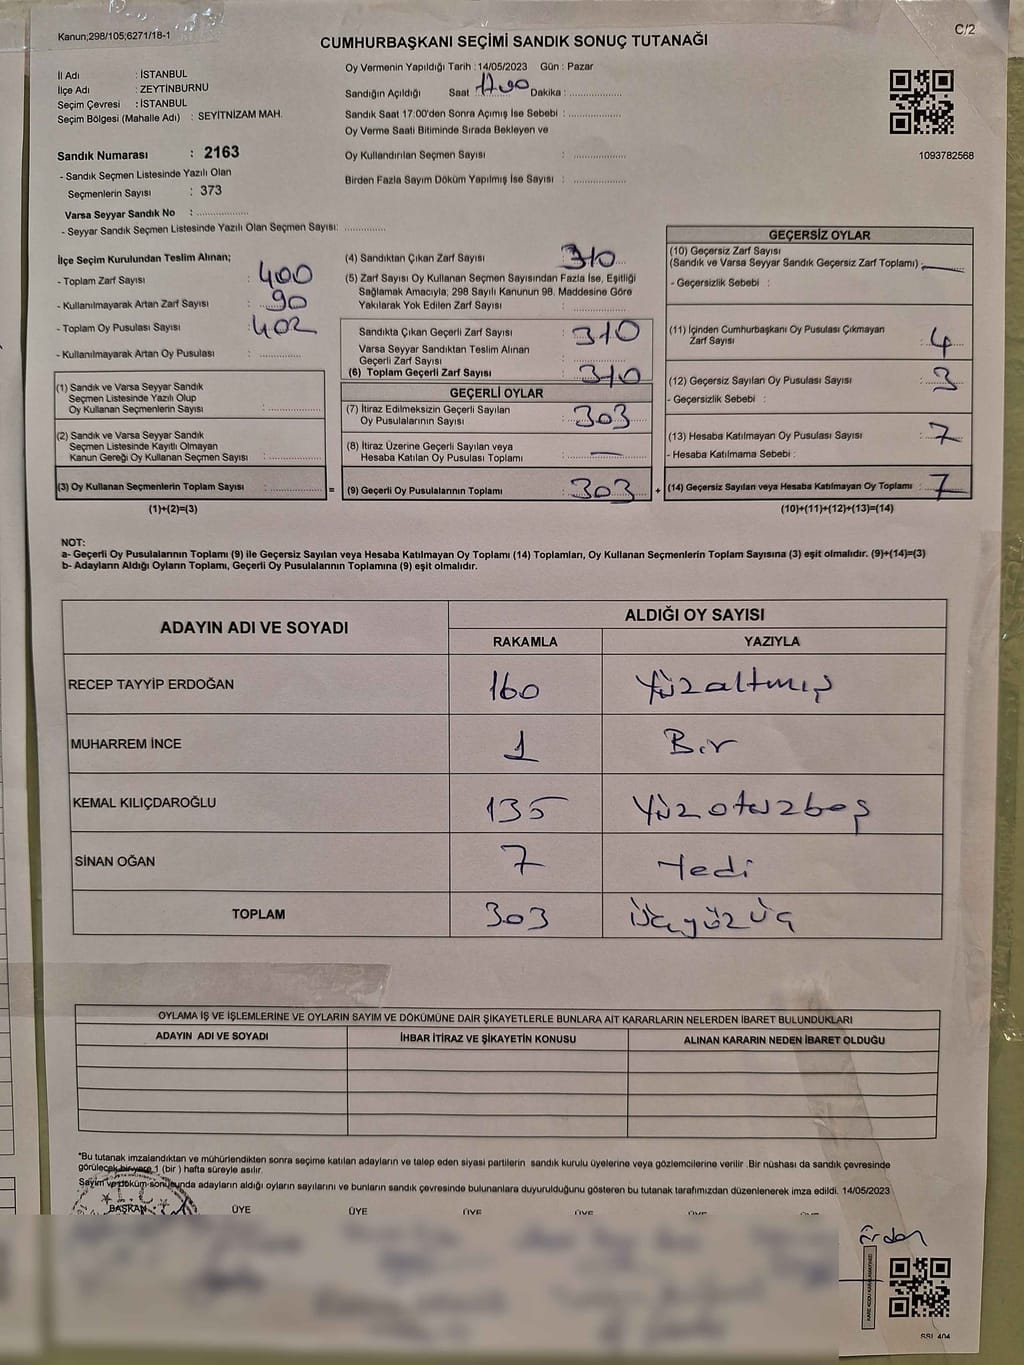 Kanun;298/105;6271/18-1
C/2
CUMHURBAŞKANI SEÇİMİ SANDIK SONUÇ TUTANAĞI
İl Adı : İSTANBUL
İlçe Adı : ZEYTİNBURNU
Seçim Çevresi : İSTANBUL
Seçim Bölgesi (Mahalle Adı) : SEYİTNİZAM MAH.
Sandık Numarası : 2163
- Sandık Seçmen Listesinde Yazılı Olan
Seçmenlerin Sayısı : 373
Varsa Seyyar Sandık No : ..................
- Seyyar Sandık Seçmen Listesinde Yazılı Olan Seçmen Sayısı: ..............
Oy Vermenin Yapıldığı Tarih : 14/05/2023 Gün : Pazar
Sandığın Açıldığı Saat 17.00 Dakika : ..................
Sandık Saat 17:00'den Sonra Açımış İse Sebebi : ..................
Oy Verme Saati Bitiminde Sırada Bekleyen ve
Oy Kullandırılan Seçmen Sayısı : ..................
Birden Fazla Sayım Döküm Yapılmış İse Sayısı : ..................
1093782568
İlçe Seçim Kurulundan Teslim Alınan;
- Toplam Zarf Sayısı : 400
- Kullanılmayarak Artan Zarf Sayısı : 90
- Toplam Oy Pusulası Sayısı : 402
- Kullanılmayarak Artan Oy Pusulası : ..............
(1) Sandık ve Varsa Seyyar Sandık
Seçmen Listesinde Yazılı Olup
Oy Kullanan Seçmenlerin Sayısı : ..................
(2) Sandık ve Varsa Seyyar Sandık
Seçmen Listesinde Kayıtlı Olmayan
Kanun Gereği Oy Kullanan Seçmen Sayısı : ..................
(3) Oy Kullanan Seçmenlerin Toplam Sayısı : .................. =
(1)+(2)=(3)
(4) Sandıktan Çıkan Zarf Sayısı : 310
(5) Zarf Sayısı Oy Kullanan Seçmen Sayısından Fazla İse, Eşitliği
Sağlamak Amacıyla; 298 Sayılı Kanunun 98. Maddesine Göre
Yakılarak Yok Edilen Zarf Sayısı : ..................
Sandıkta Çıkan Geçerli Zarf Sayısı : 310
Varsa Seyyar Sandıktan Teslim Alınan
Geçerli Zarf Sayısı : ..................
(6) Toplam Geçerli Zarf Sayısı : 310
GEÇERLİ OYLAR
(7) İtiraz Edilmeksizin Geçerli Sayılan
Oy Pusulalarının Sayısı : 303
(8) İtiraz Üzerine Geçerli Sayılan veya
Hesaba Katılan Oy Pusulası Toplamı : —
(9) Geçerli Oy Pusulalarının Toplamı : 303 +
GEÇERSİZ OYLAR
(10) Geçersiz Zarf Sayısı
(Sandık ve Varsa Seyyar Sandık Geçersiz Zarf Toplamı) : —
- Geçersizlik Sebebi :
(11) İçinden Cumhurbaşkanı Oy Pusulası Çıkmayan
Zarf Sayısı : 4
(12) Geçersiz Sayılan Oy Pusulası Sayısı : 3
- Geçersizlik Sebebi :
(13) Hesaba Katılmayan Oy Pusulası Sayısı : 7
- Hesaba Katılmama Sebebi :
(14) Geçersiz Sayılan veya Hesaba Katılmayan Oy Toplamı : 7
(10)+(11)+(12)+(13)=(14)
NOT:
a- Geçerli Oy Pusulalarının Toplamı (9) ile Geçersiz Sayılan veya Hesaba Katılmayan Oy Toplamı (14) Toplamları, Oy Kullanan Seçmenlerin Toplam Sayısına (3) eşit olmalıdır. (9)+(14)=(3)
b- Adayların Aldığı Oyların Toplamı, Geçerli Oy Pusulalarının Toplamına (9) eşit olmalıdır.
ADAYIN ADI VE SOYADI
ALDIĞI OY SAYISI
RAKAMLA YAZIYLA
RECEP TAYYİP ERDOĞAN 160 Yüzaltmış
MUHARREM İNCE 1 Bir
KEMAL KILIÇDAROĞLU 135 Yüzotuzbeş
SİNAN OĞAN 7 Yedi
TOPLAM 303 Üçyüzüç
OYLAMA İŞ VE İŞLEMLERİNE VE OYLARIN SAYIM VE DÖKÜMÜNE DAİR ŞİKAYETLERLE BUNLARA AİT KARARLARIN NELERDEN İBARET BULUNDUKLARI
ADAYIN ADI VE SOYADI İHBAR İTİRAZ VE ŞİKAYETİN KONUSU ALINAN KARARIN NEDEN İBARET OLDUĞU
*Bu tutanak imzalandıktan ve mühürlendikten sonra seçime katılan adayların ve talep eden siyasi partilerin sandık kurulu üyelerine veya gözlemcilerine verilir .Bir nüshası da sandık çevresinde
görülecek bir yere 1 (bir ) hafta süreyle asılır.
Sayım ve döküm sonucunda adayların aldığı oyların sayılarını ve bunların sandık çevresinde bulunanlara duyurulduğunu gösteren bu tutanak tarafımızdan düzenlenerek imza edildi. 14/05/2023
T.C.
BAŞKAN ÜYE ÜYE ÜYE ÜYE ÜYE ÜYE
SSI 404